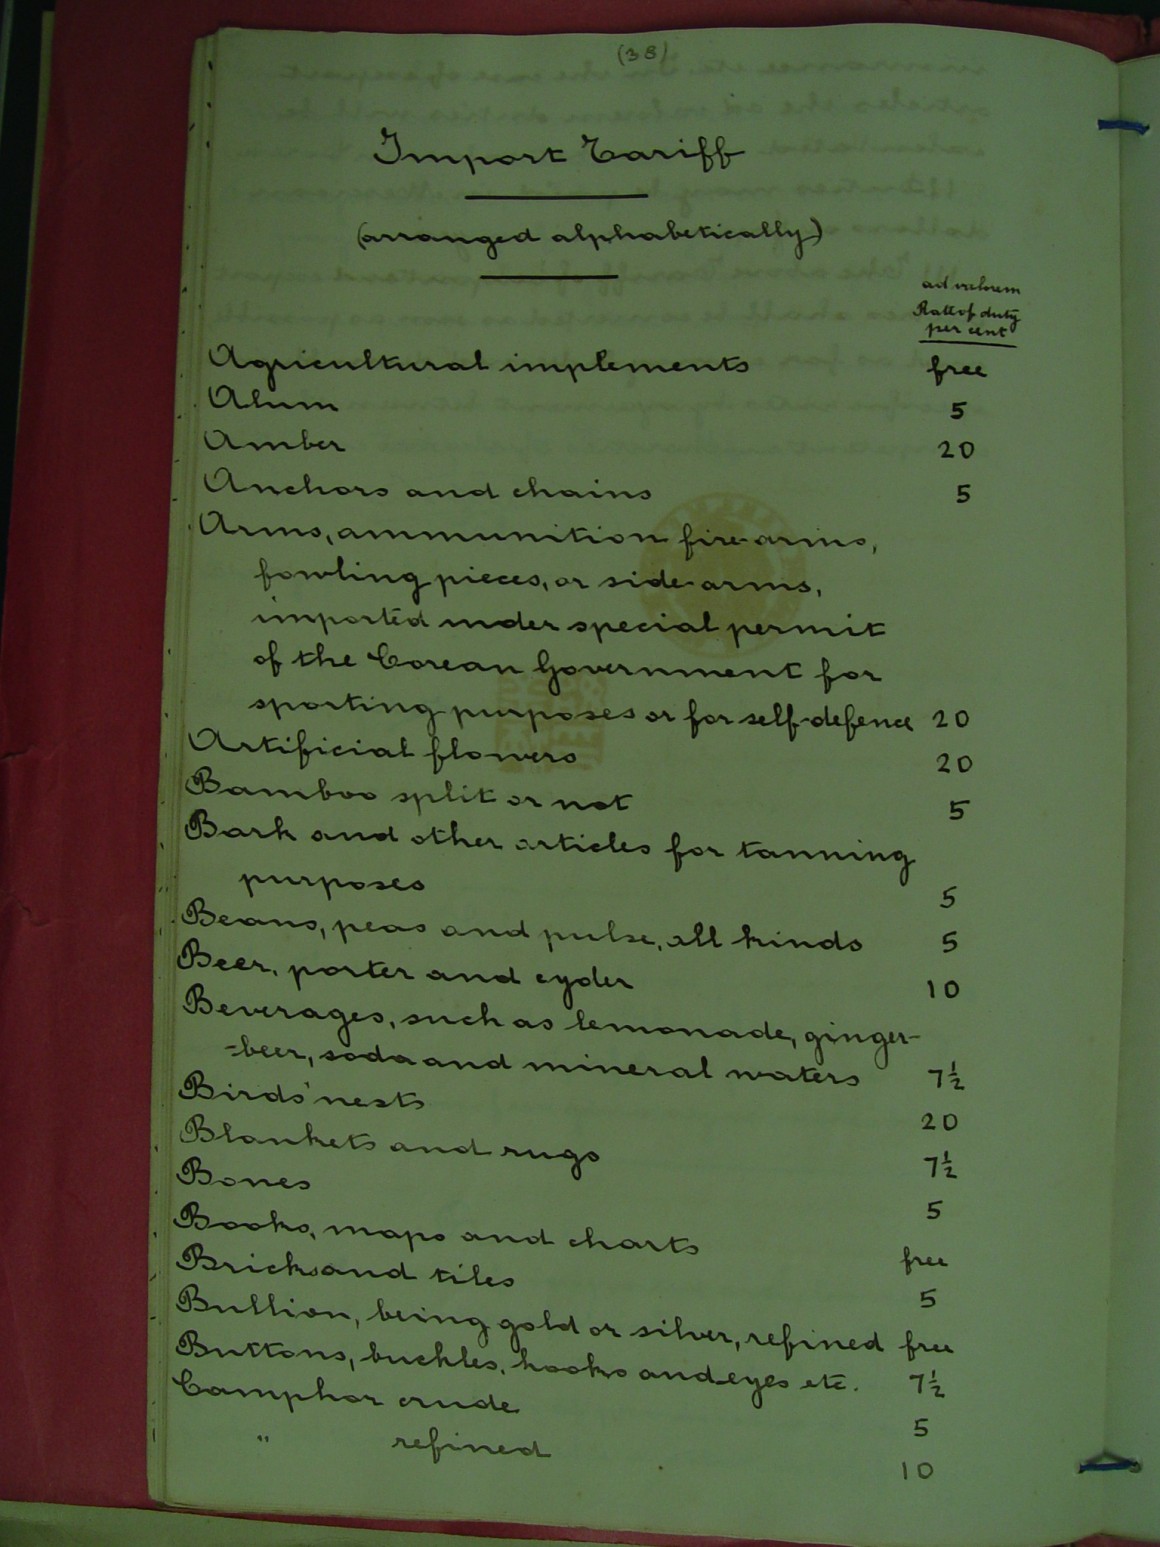 (38)
Import Tariff
(arranged alphabetically)
ad valorem
Rate of duty
per cent
Agricultural implements free
Alum 5
Amber 20
Anchors and chains 5
Arms, ammunition fire-arms,
fowling pieces, or side-arms,
imported under special permit
of the Corean Government for
sporting purposes or for self-defence 20
Artificial flowers 20
Bamboo split or not 5
Bark and other articles for tanning
purposes 5
Beans, peas and pulse, all kinds 5
Beer, porter and cyder 10
Beverages, such as lemonade, ginger-
-beer, soda and mineral waters 7½
Birds' nests 20
Blankets and rugs 7½
Bones 5
Books, maps and charts free
Bricks and tiles 5
Bullion, being gold or silver, refined free
Buttons, buckles, hooks and eyes etc. 7½
Camphor crude 5
" refined 10